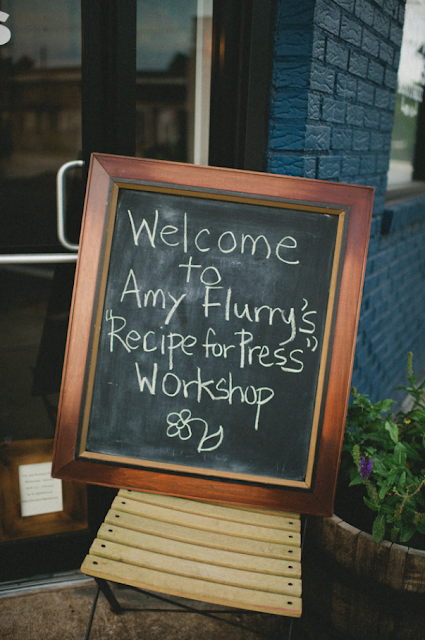 Welcome
to
Amy Flurry's
"Recipe for Press"
Workshop